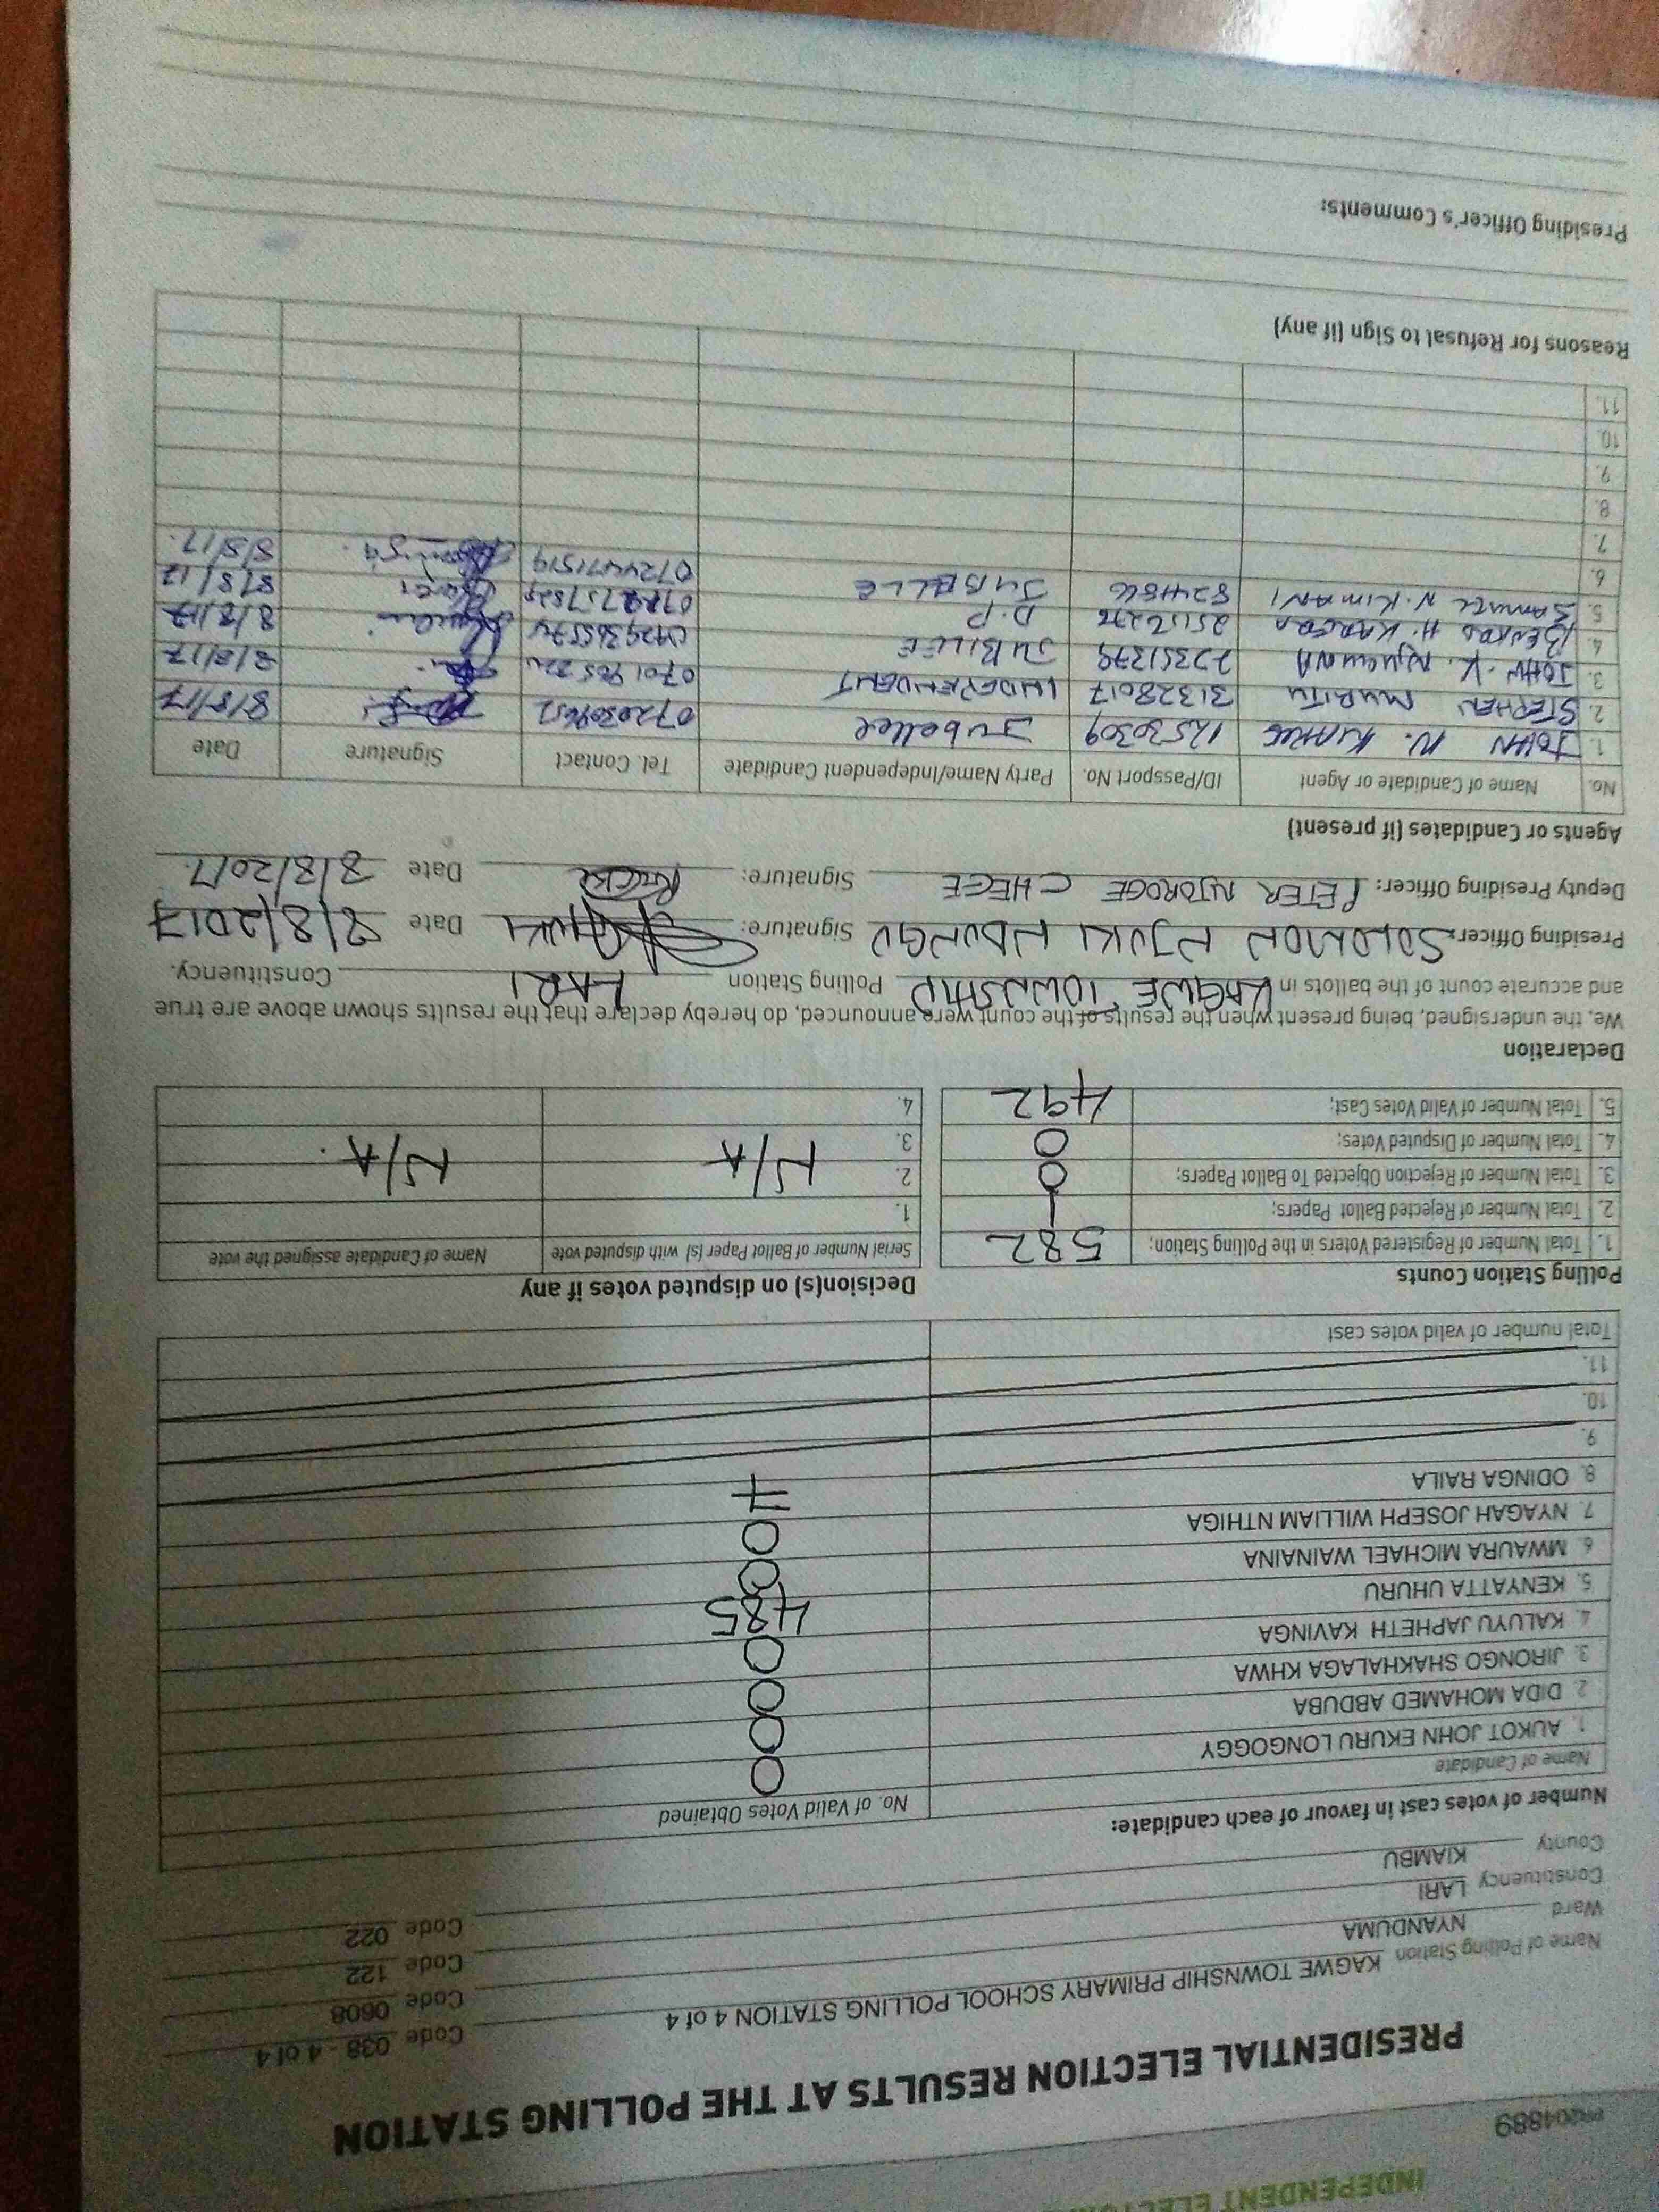 INDEPENDENT ELECTOR
PR204889
PRESIDENTIAL ELECTION RESULTS AT THE POLLING STATION
Name of Polling Station KAGWE TOWNSHIP PRIMARY SCHOOL POLLING STATION 4 of 4 Code 038 - 4 of 4
Ward NYANDUMA Code 0608
Constituency LARI Code 122
County KIAMBU Code 022
Number of votes cast in favour of each candidate:
Name of Candidate No. of Valid Votes Obtained
1. AUKOT JOHN EKURU LONGOGGY 0
2. DIDA MOHAMED ABDUBA 0
3. JIRONGO SHAKHALAGA KHWA 0
4. KALUYU JAPHETH KAVINGA 0
5. KENYATTA UHURU 485
6. MWAURA MICHAEL WAINAINA 0
7. NYAGAH JOSEPH WILLIAM NTHIGA 0
8. ODINGA RAILA 7
9.
10.
11.
Total number of valid votes cast
Polling Station Counts
1. Total Number of Registered Voters in the Polling Station; 582
2. Total Number of Rejected Ballot Papers; 1
3. Total Number of Rejection Objected To Ballot Papers; 0
4. Total Number of Disputed Votes; 0
5. Total Number of Valid Votes Cast; 492
Decision(s) on disputed votes if any
Serial Number of Ballot Paper (s) with disputed vote Name of Candidate assigned the vote
1.
2. N/A N/A
3.
4.
Declaration
We, the undersigned, being present when the results of the count were announced, do hereby declare that the results shown above are true
and accurate count of the ballots in KAGWE TOWNSHIP Polling Station LARI Constituency.
Presiding Officer: SOLOMON NJUKI NDUNGU Signature: Date 8/8/2017
Deputy Presiding Officer: PETER NJOROGE CHEGE Signature: Date 8/8/2017
Agents or Candidates (if present)
No. Name of Candidate or Agent ID/Passport No. Party Name/Independent Candidate Tel. Contact Signature Date
1. JOHN N. 12530309 Jubellee 0720309652 8/8/17
2. STEPHEN MURITU 31328017 INDEPENDENT 8/8/17
3. JOHN . K. 22351379 JUBILEE 8/8/17
4. H. KARIORA D.P 8/8/17
5. SAMUEL N. KIMANI JUBELLE 0724471519 8/8/17.
6.
7.
8.
9.
10.
11.
Reasons for Refusal to Sign (if any)
Presiding Officer's Comments: